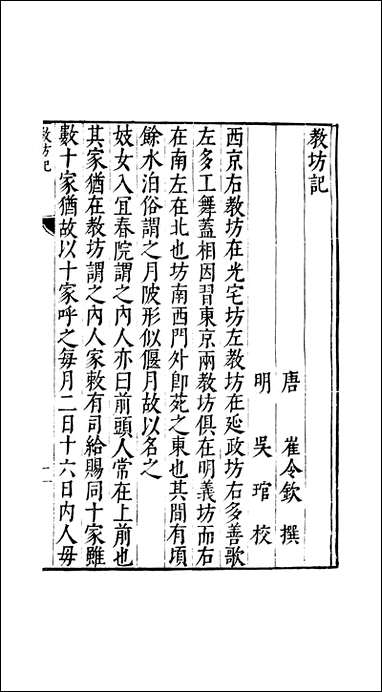 教坊記
唐　崔令欽　撰
明　吳琯　校
西京右教坊在光宅坊左教坊在延政坊右多善歌
左多工舞蓋相因習東京兩教坊俱在明義坊而右
在南左在北也坊南西門外卽苑之東也其間有頃
餘水泊俗謂之月陂形似偃月故以名之
妓女入宜春院謂之內人亦曰前頭人常在上前也
其家猶在教坊謂之內人家敕有司給賜同十家雖
數十家猶故以十家呼之每月二日十六日內人毋
教坊記
一